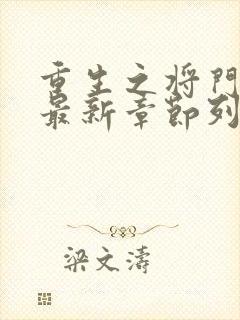 重生之将门
最新章节列
梁文濤